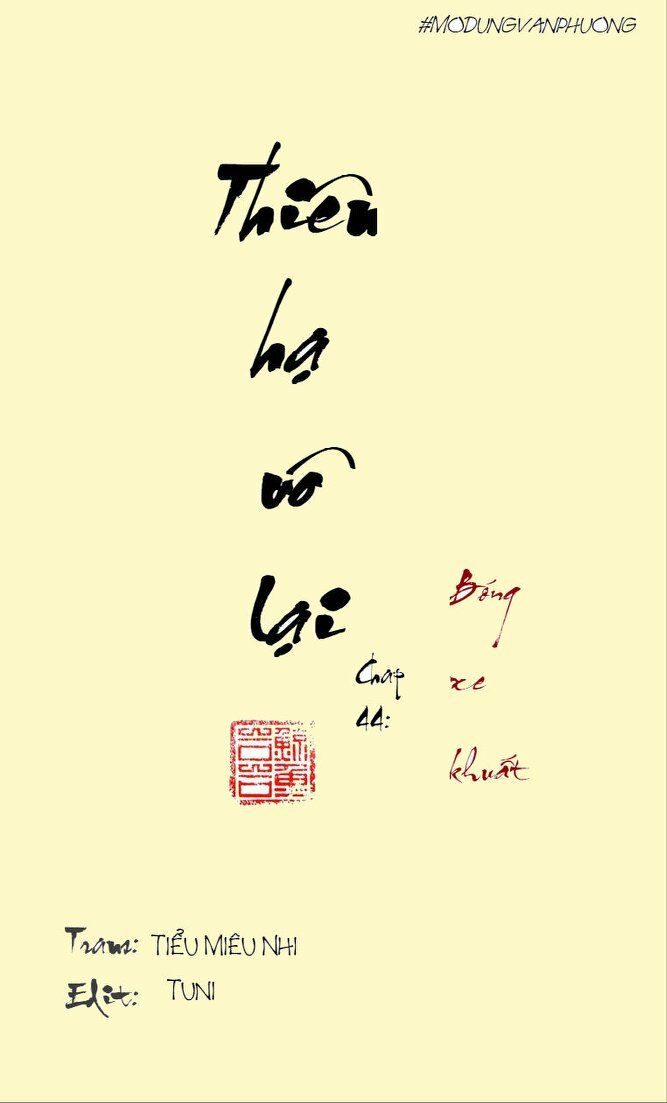 #MODUNGVANPHUONG
Thiên
hạ
vô
lại
Chap
44:
Bóng
xe
khuất
Trans: TIỂU MIÊU NHI
Edit: TUNI